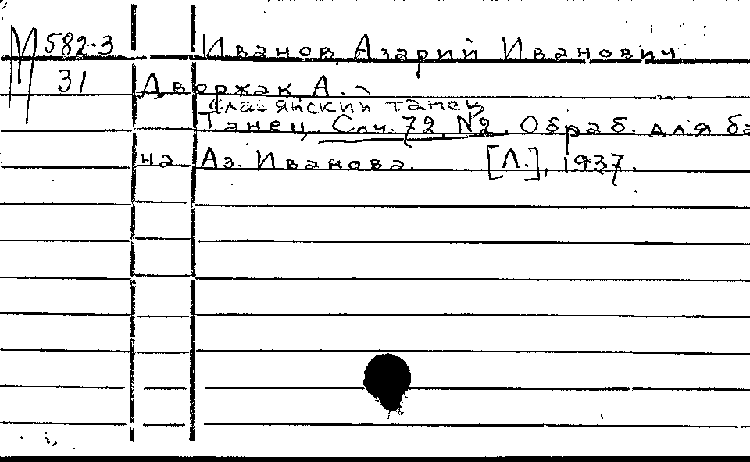 М 582-3 Иванов, Азарий Иванович
31 Дворжак, А.
Славянский танец
Танец, Соч. 72, №2. Обраб. для ба
на Аз. Иванова. [Л.], 1937.